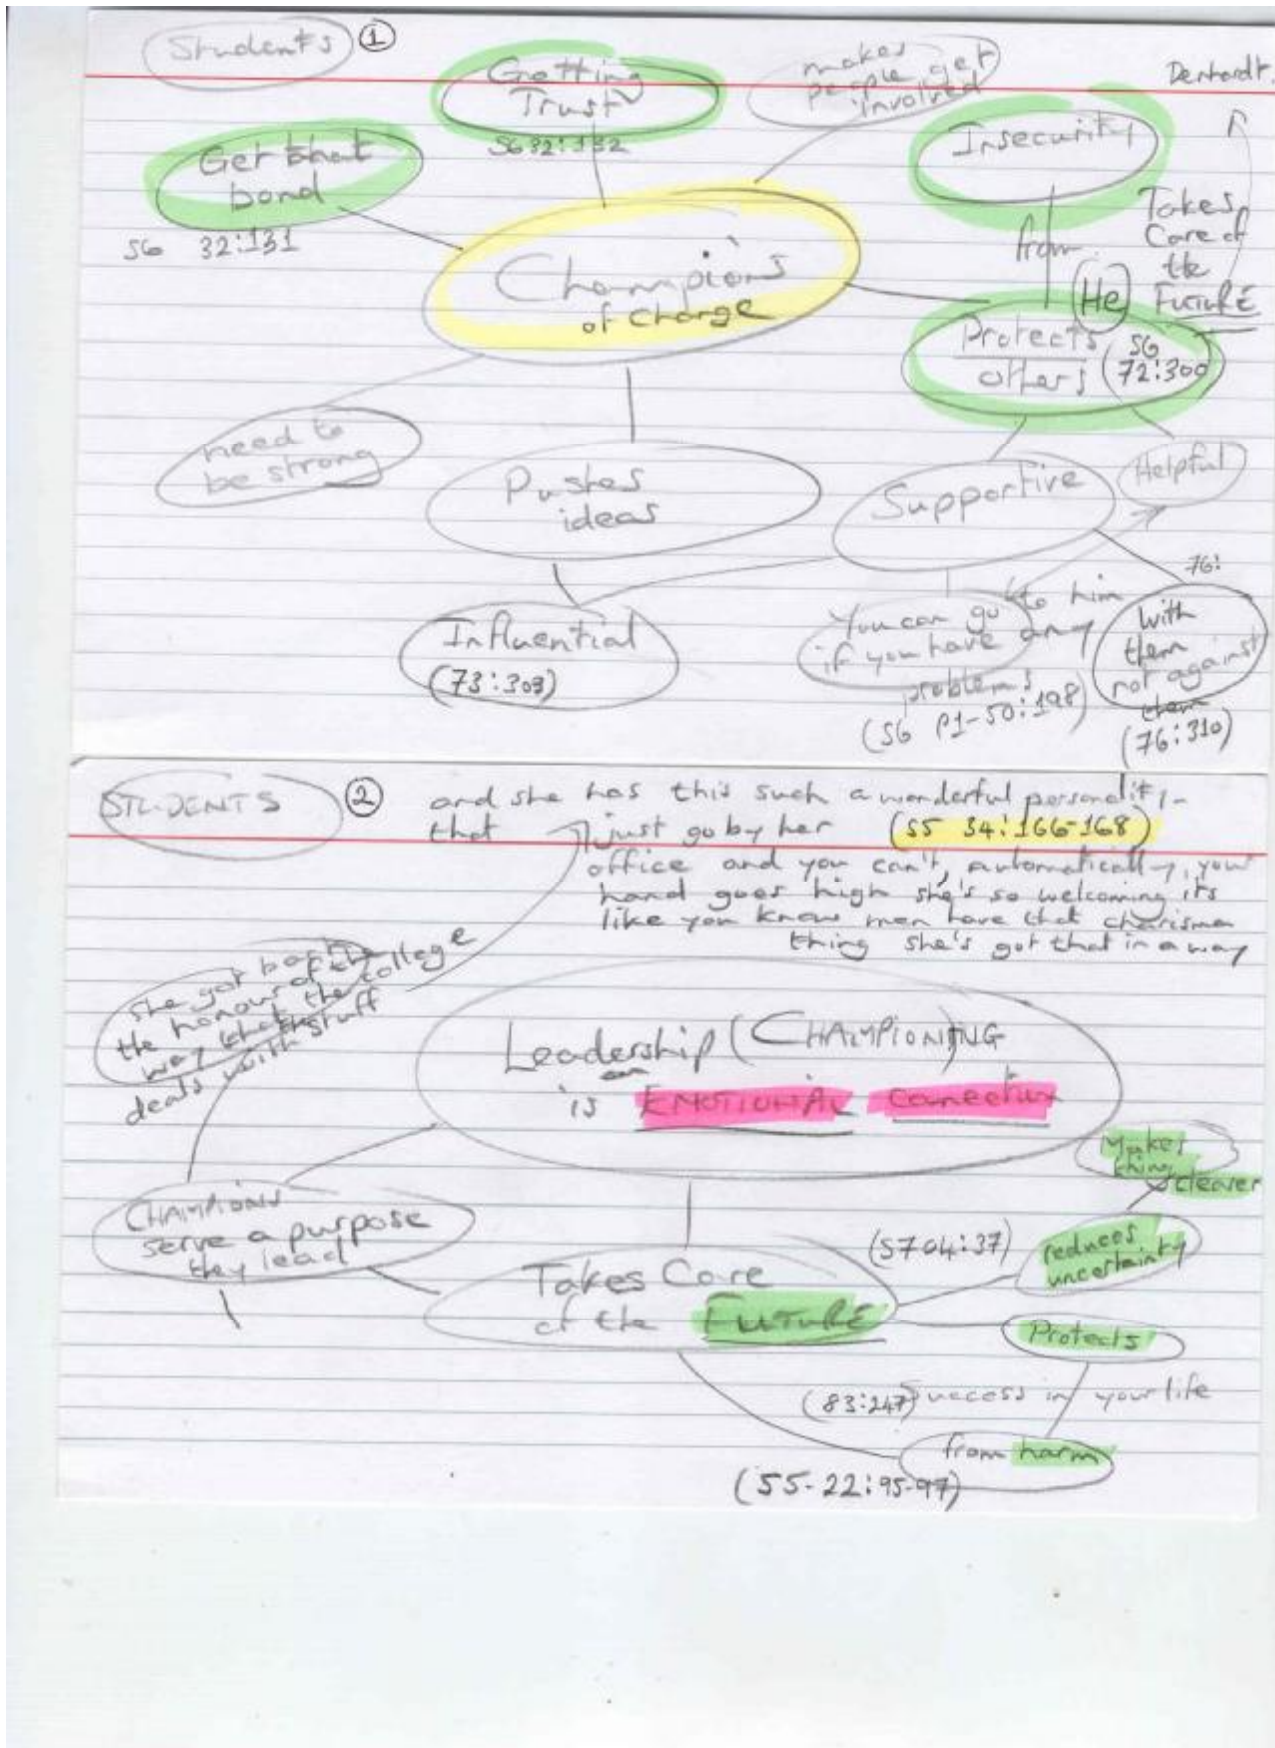 Students ①
Getting
Trust
S6 32:132
makes
people get
involved
Denhardt.
Get that
bond
S6 32:131
Insecurity
from
Takes
Care of
the
FUTURE
Champions
of Change
He
Protects
others
(S6
72:300)
need to
be strong
Pushes
ideas
Supportive
Helpful
Influential
(73:303)
You can go to him
if you have any
problems
(S6 P1-50:198)
76:
with
them
not against
them
(76:310)
STUDENTS ②
and she has this such a wonderful personality-
that just go by her (S5 34:166-168)
office and you can't, automatically, your
hand goes high she's so welcoming its
like you know men have that charisma
thing she's got that in a way
she got back
the honour of the
way that the college
deals with stuff
Leadership (CHAMPIONING)
is EMOTIONAL connection
Makes
things
clearer
CHAMPIONS
serve a purpose
they lead
(S7 04:37)
reduces
uncertainty
Takes Care
of the FUTURE
Protects
(83:247) Success in your life
from harm
(S5-22:95-97)